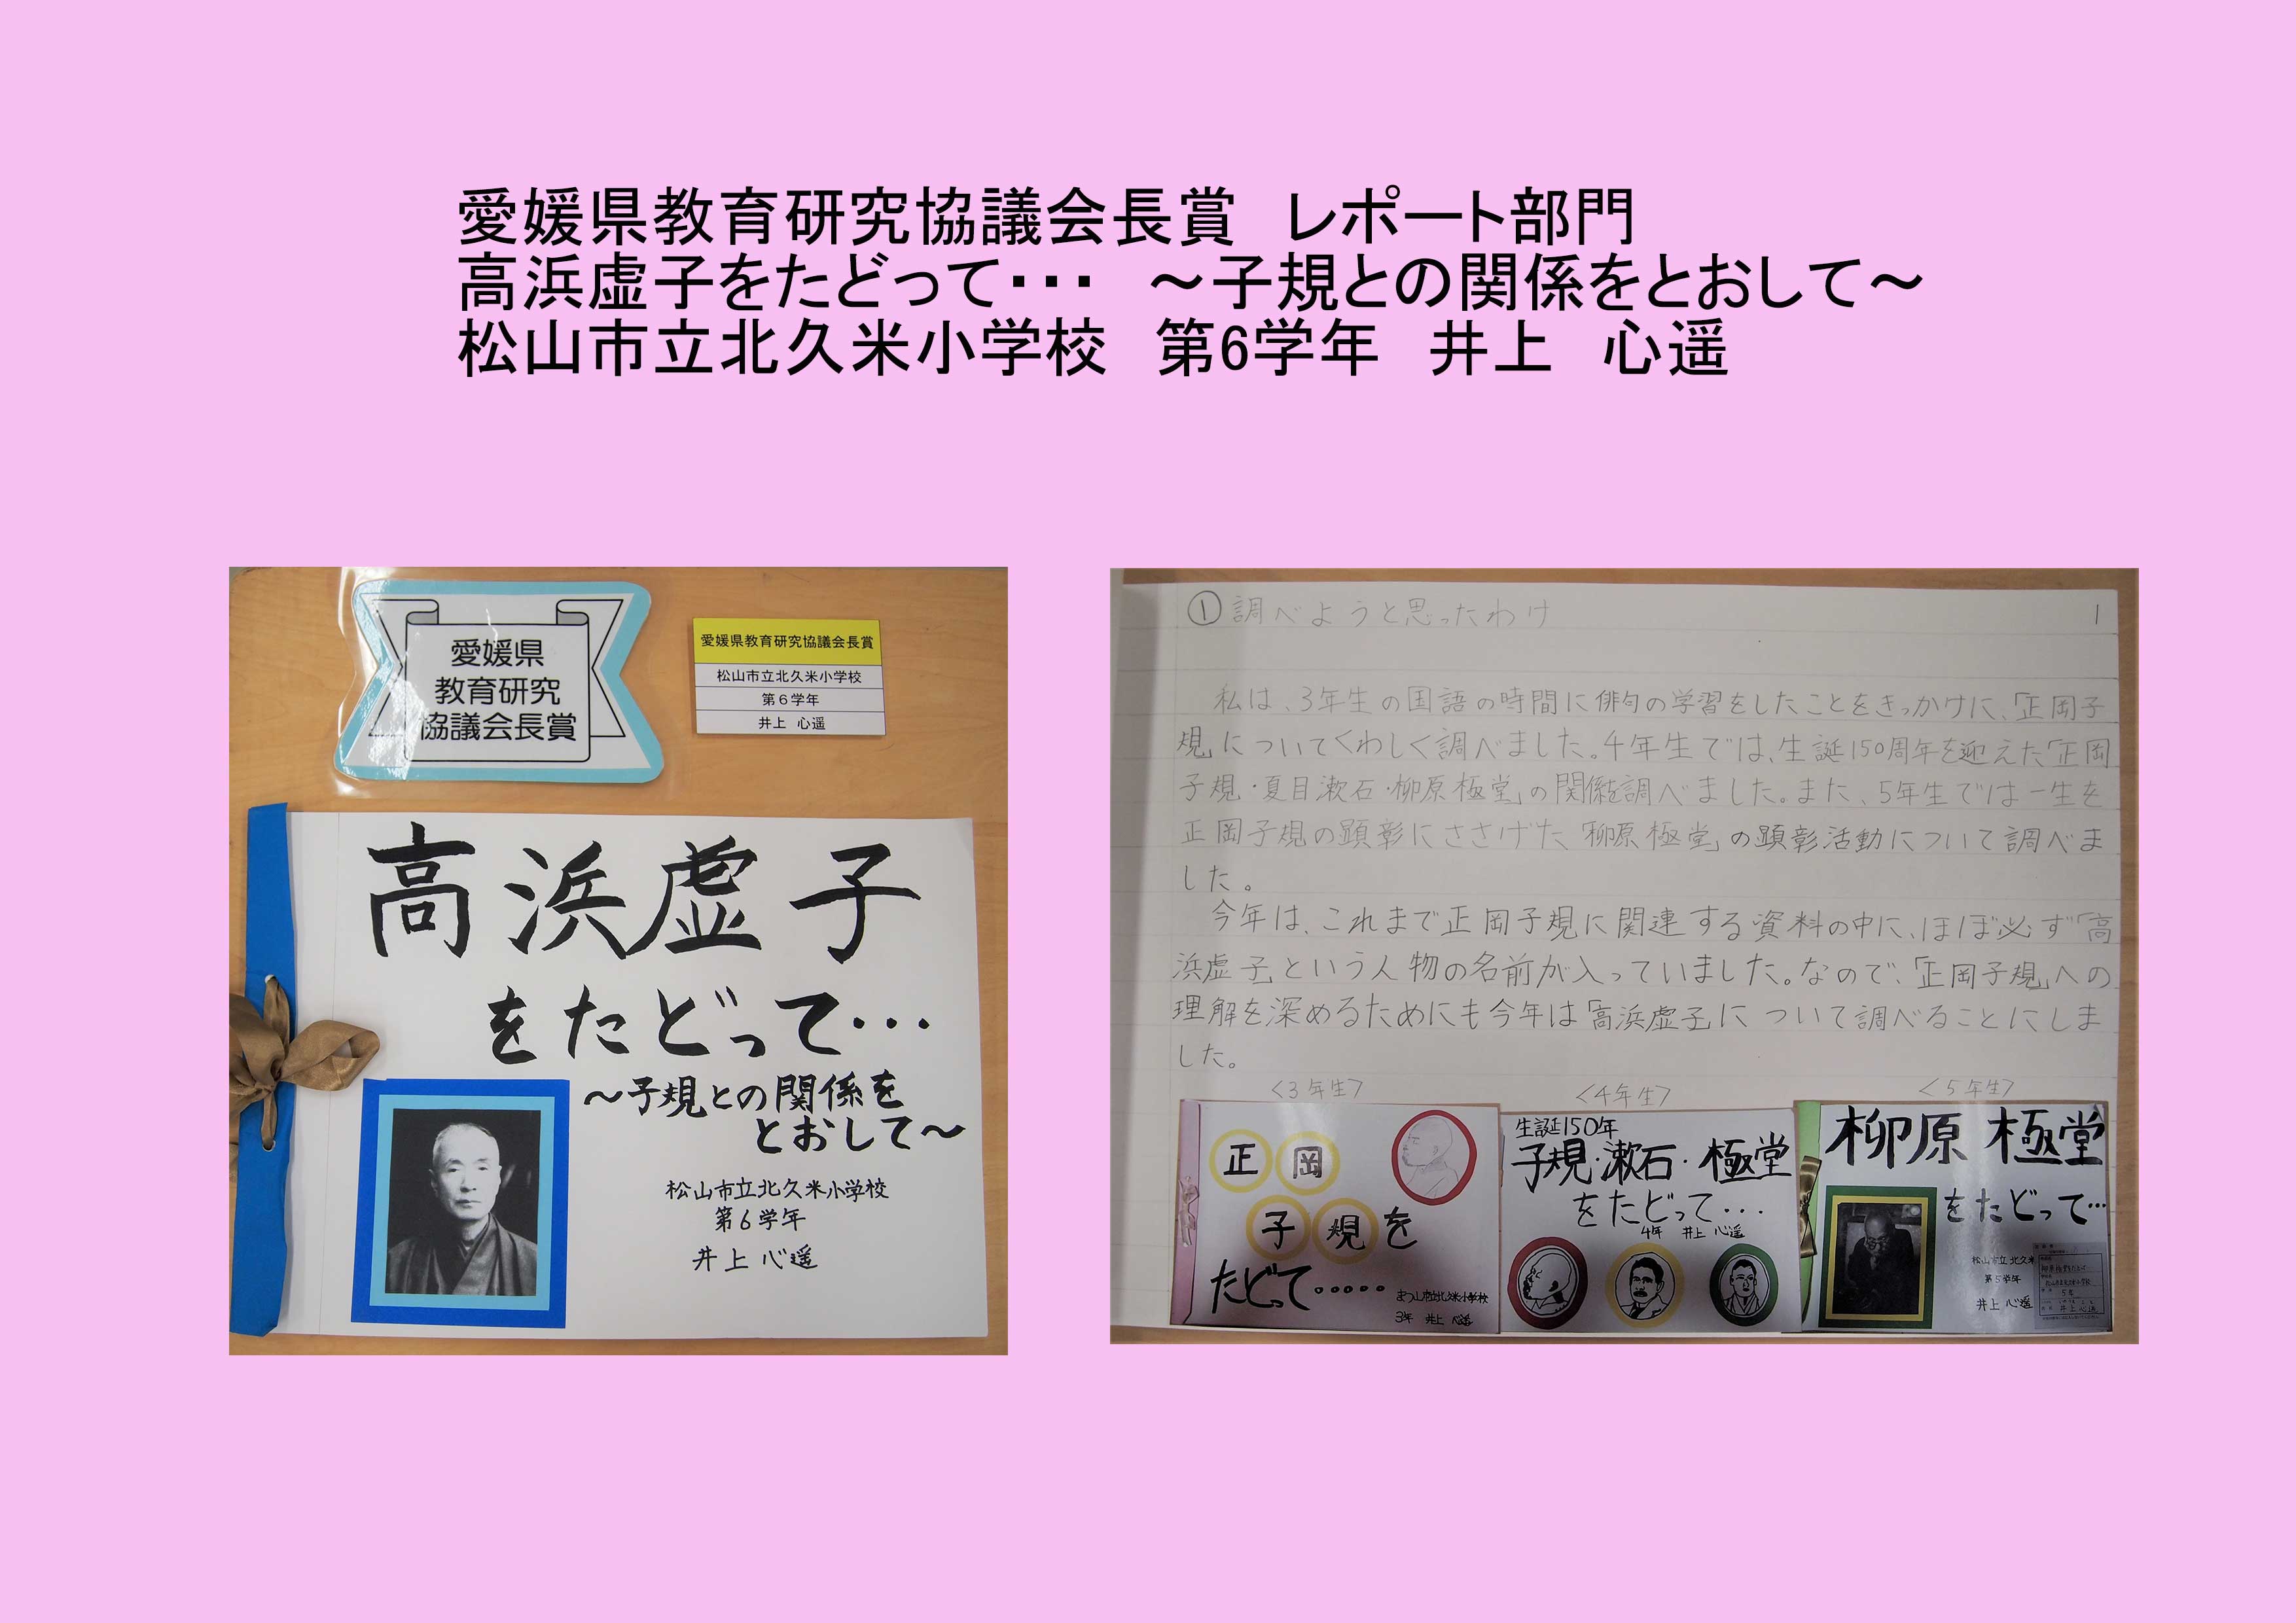 愛媛県教育研究協議会長賞　レポート部門
高浜虚子をたどって・・・　～子規との関係をとおして～
松山市立北久米小学校　第6学年　井上　心遥
愛媛県
教育研究
協議会長賞
愛媛県教育研究協議会長賞
松山市立北久米小学校
第６学年
井上　心遥
高浜虚子
をたどって…
～子規との関係を
とおして～
松山市立北久米小学校
第6学年
井上心遥
①調べようと思ったわけ
1
私は、3年生の国語の時間に俳句の学習をしたことをきっかけに、「正岡子
規」についてくわしく調べました。4年生では、生誕150周年を迎えた「正岡
子規・夏目漱石・柳原極堂」の関係を調べました。また、5年生では一生を
正岡子規の顕彰にささげた「柳原極堂」の顕彰活動について調べま
した。
今年は、これまで正岡子規に関連する資料の中に、ほぼ必ず「高
浜虚子」という人物の名前が入っていました。なので、「正岡子規」への
理解を深めるためにも今年は「高浜虚子」について調べることにしま
した。
<3年生>
<4年生>
<5年生>
正岡
子規を
たどって・・・・・
まつ山市立北久米小学校
3年 井上 心遥
生誕150年
子規・漱石・極堂
をたどって・・・
4年 井上 心遥
柳原 極堂
をたどって…
松山市立北久米
第5学年
井上 心遥